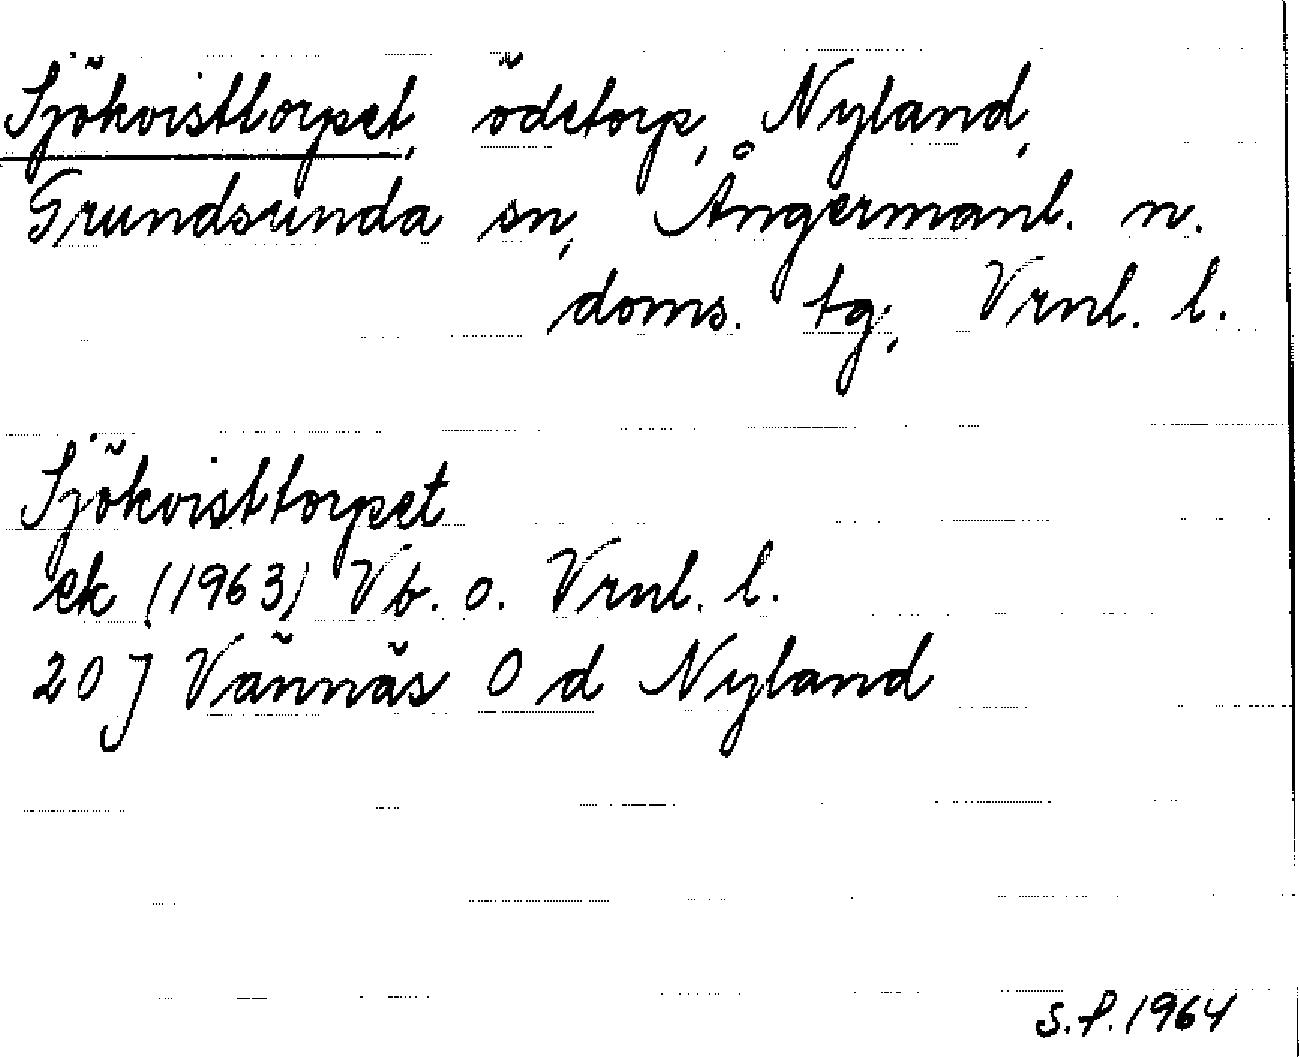 Sjökvisttorpet, ödetorp, Nyland,
Grundsunda sn, Ångermanl. n.
doms. tg, Vrnl. l.
Sjökvisttorpet
ek (1963) Vb. o. Vrnl. l.
20 J Vännäs 0 d Nyland
S.P. 1964